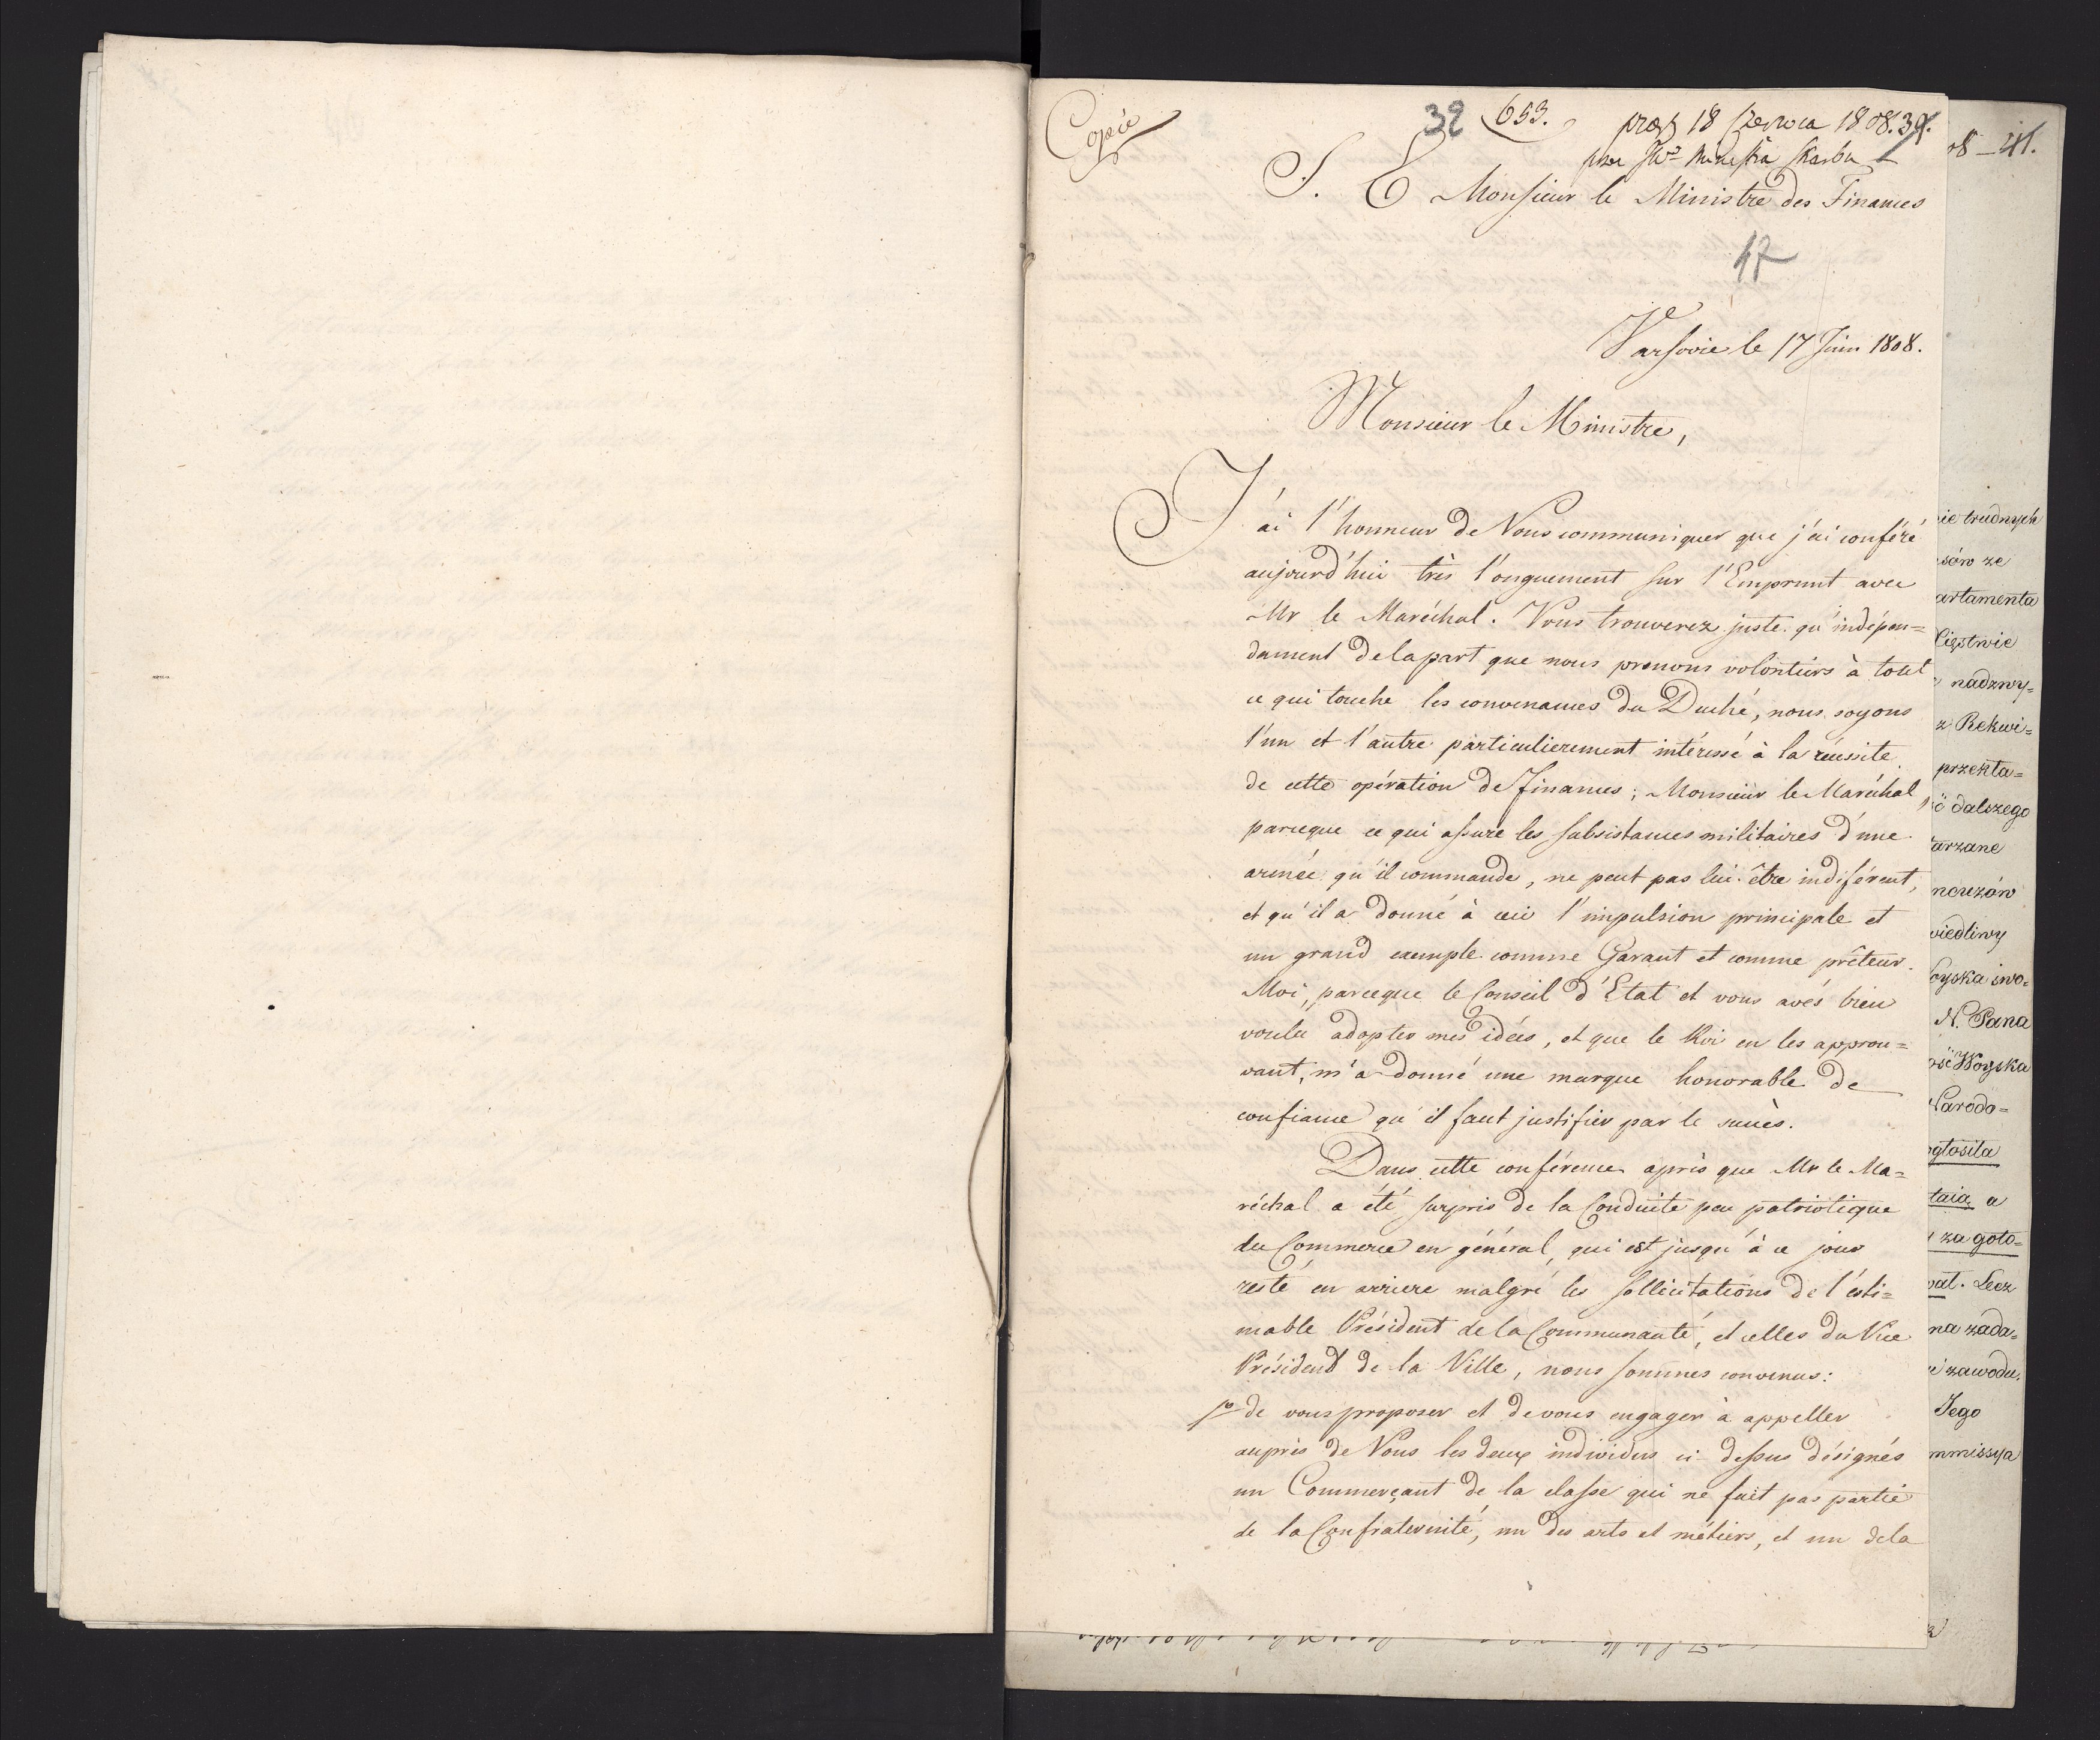 Copie
32 653. præs 18 Czerwca 1808. 39.
przez JWo Ministra Skarbu
S. E Monsieur le Ministre des Finances
47
Varsovie le 17 Juin 1808.
Monsieur le Ministre,
J'ai l'honneur de Vous communiquer que j'ai conféré
aujourd'hui très l'onguement sur l'Emprunt avec
Mr le Maréchal. Vous trouverez juste qu'indépen=
dament de la part que nous prenons volontiers à tout
ce qui touche les convenances du Duché, nous soyons
l'un et l'autre particulierement intéressé à la réussite
de cette opération de finances; Monsieur le Maréchal,
parceque ce qui assure les subsistances militaires d'une
armée qu'il commande, ne peut pas lui être indiférent,
et qu'il a donné à ceci l'impulsion principale et
un grand exemple comme Garant et comme prêteur.
Moi, parceque le Conseil d'Etat et vous avés bien
voulu adopter mes idées, et que le Roi en les approu=
vant, m'a donné une marque honorable de
confiance qu'il faut justifier par le succès.
Dans cette conférence après que Mr le Ma=
réchal a été surpris de la Conduite peu patriotique
du Commerce en général, qui est jusqu'à ce jour
resté en arriere malgré les sollicitations de l'esti=
mable Président de la Communauté, et celles du Vice
Président de la Ville, nous sommes convenus:
1o de vous proposer et de vous engager à appeller
auprès de Vous les deux individus ci-dessus désignés
un Commerçant de la classe qui ne fait pas partie
de la Confraternité, un des arts et métiers, et un de la
08 - 41.
ie trudnych
sów ze
artamenta
nadzwy=
z Rekwi=
przekta=
dalszego
arzane
wiedliwy
N. Pana
Woyska
Narodo=
głosiła
taią a
za goto=
wał. Lecz
na zada=
zawodu.
Jego
mmissya